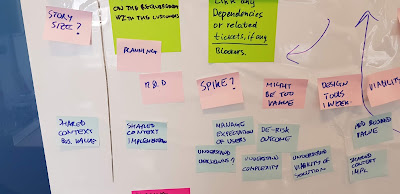 STORY
SIZE?
ON THE REQUIREMENT
WITH THE CUSTOMERS
LINK any
Dependencies
or related
tickets, if any
Blockers.
PLANNING
R&D
SPIKE?
MIGHT
BE TOO
VAGUE
DESIGN
TOOLS
1 WEEK.
VIABILITY
SHARED
CONTEXT
BUS. VALUE
SHARED
CONTEXT
IMPLEMENTING
MANAGE
EXPECTATION
OF USERS
DE-RISK
OUTCOME
ADD BUSINESS
VALUE
UNDERSTAND
UNKNOWNS?
UNDERSTAND
COMPLEXITY
UNDERSTAND
VIABILITY OF
SOLUTION
SHARED
CONTEXT
IMPL